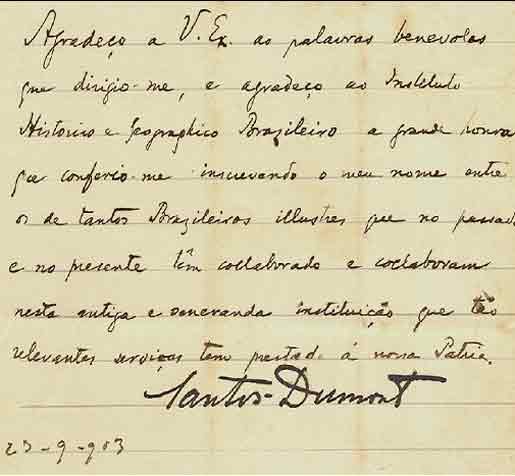 Agradeço a V. Ex. as palavras benevolas
que dirigio-me, e agradeço ao Instituto
Historico e Geographico Brazileiro a grande honra
que conferio-me inscrevendo o meu nome entre
os de tantos Brazileiros illustres que no passad
e no presente têm collaborado e collaboram
nesta antiga e veneranda instituição que tão
relevantes serviços tem prestado á nossa Patria.
Santos-Dumont
23-9-903